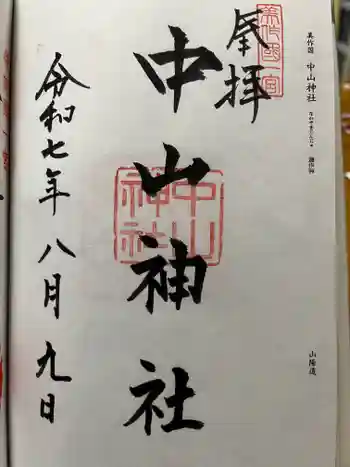 美作国 中山神社
山陽道
美作國一宮
奉拝
中山神社
中山神社
令和七年 八月 九日